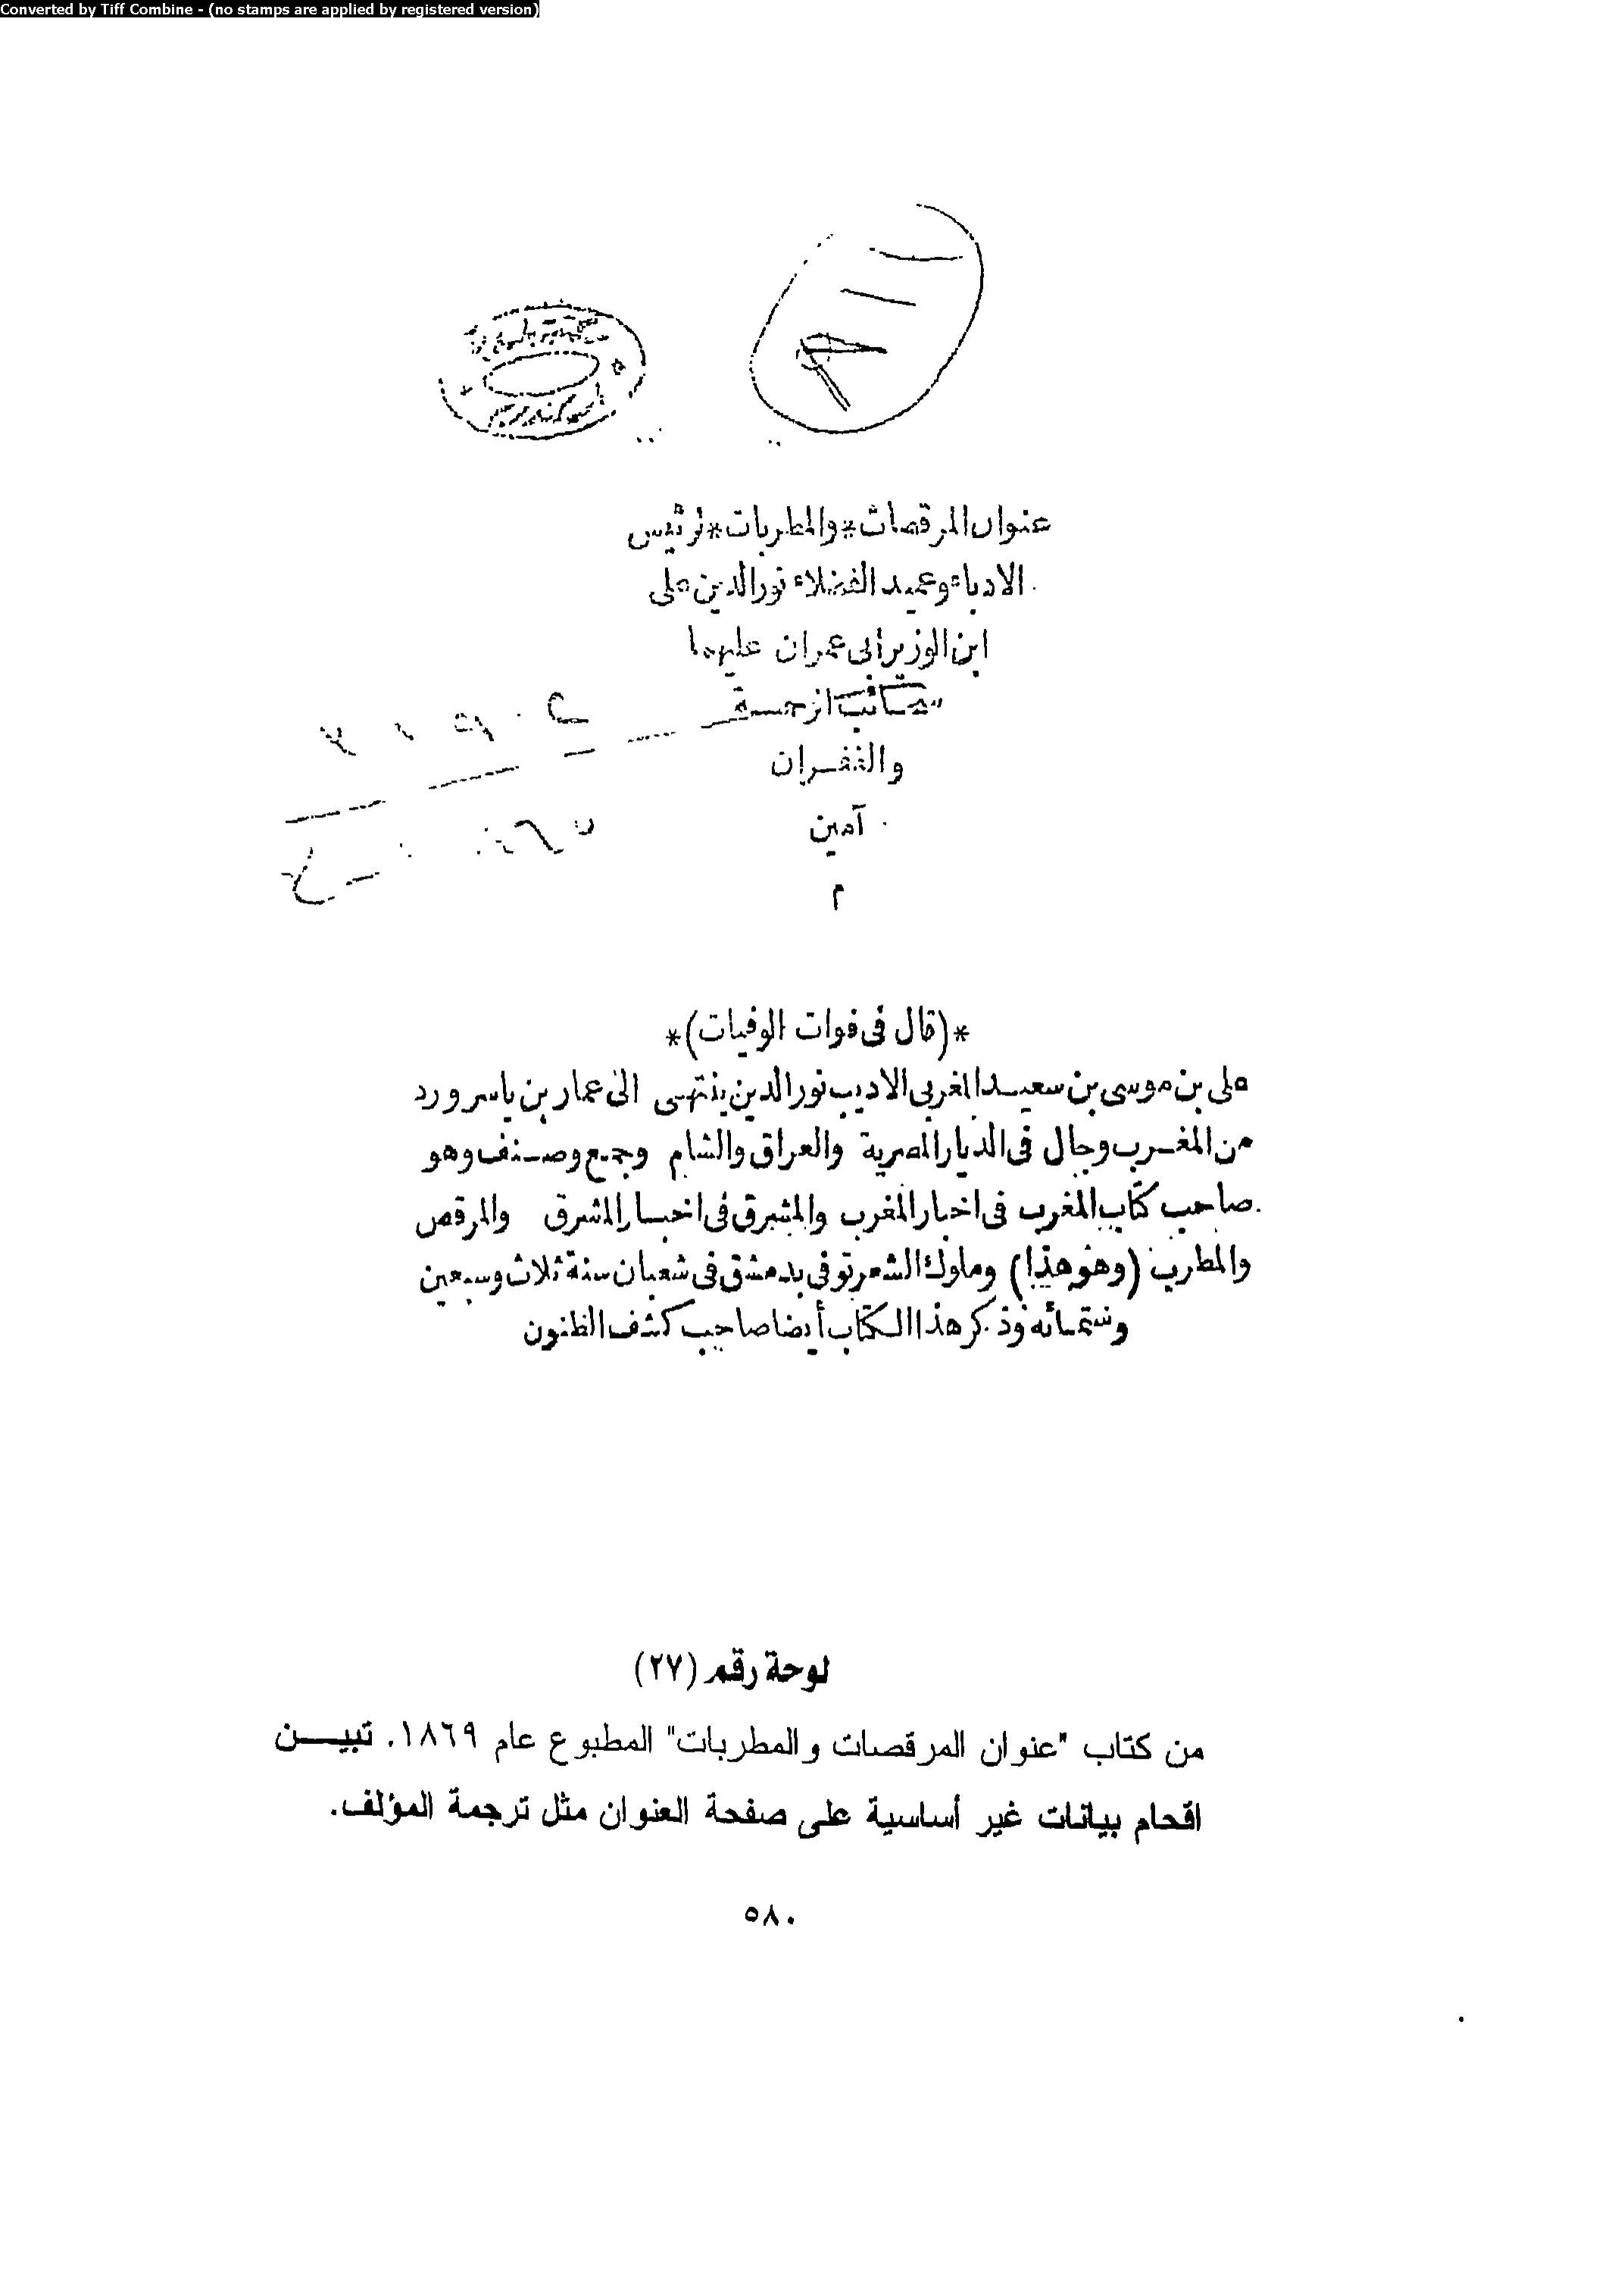 Converted by Tiff Combine - (no stamps are applied by registered version)
عنوان المرقصات * والمطربات * لرئيس
الادباء وعميد الفضلاء نور الدين على
ابن الوزير أبى عمران عليهما
سحائب الرحمة
والغفران
آمين
م
*(قال فى فوات الوفيات)*
على بن موسى بن سعيد المغربى الاديب نور الدين ينتهى الى عمار بن ياسر ورد
من المغرب وجال فى الديار المصرية والعراق والشام وجمع وصنف وهو
صاحب كتاب المغرب فى اخبار المغرب والمشرق فى اخبار المشرق والمرقص
والمطرب (وهو هذا) وملوك الشعر توفى بدمشق فى شعبان سنة ثلاث وسبعين
وستمائة وذكر هذا الكتاب أيضا صاحب كشف الظنون
لوحة رقم (٢٧)
من كتاب "عنوان المرقصات والمطربات" المطبوع عام ١٨٦٩. تبيـــن
اقحام بيانات غير أساسية على صفحة العنوان مثل ترجمة المؤلف.
٥٨٠